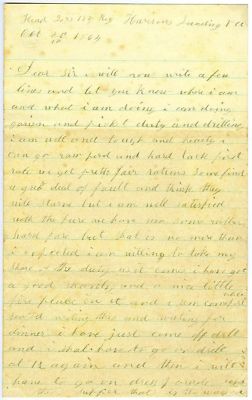 Head Qrs 114 Reg Harrisons Landing Va
Oct 1864
Dear Sir i will now write a few
lines and let you know where i am
and what i am doing i am doing
garison and picket duty and drilling
i am well and tough and ready i
can go raw pork and hard tack first
rate we get pretty fair rations some find
a great deal of fault and think they
will starve but i am well satisfied
with the fare we have had some rather
hard fare but that is no more than
i expected i am willing to take my
share of the duty as it comes i have got
a good shanty and a nice little
fire place in it and i am comfort
writing this and waiting for
dinner i have just come off drill
and i shall have to go on drill
at 12 again and then i will
have to go on dress parade
the is the way